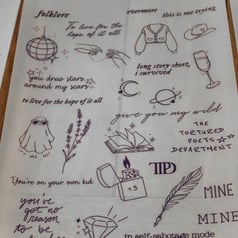 folklore
evermore
this is me trying
To live for the
hope of it all
long story short,
i survived
you drew stars
around my scars
to live for the hope of it all
give you my wild
THE
TORTURED
POETS
DEPARTMENT
TTPD
You're on your own kid
you've
got no
reason
to be
1.3
MINE
MINE
in self-sabotage mode